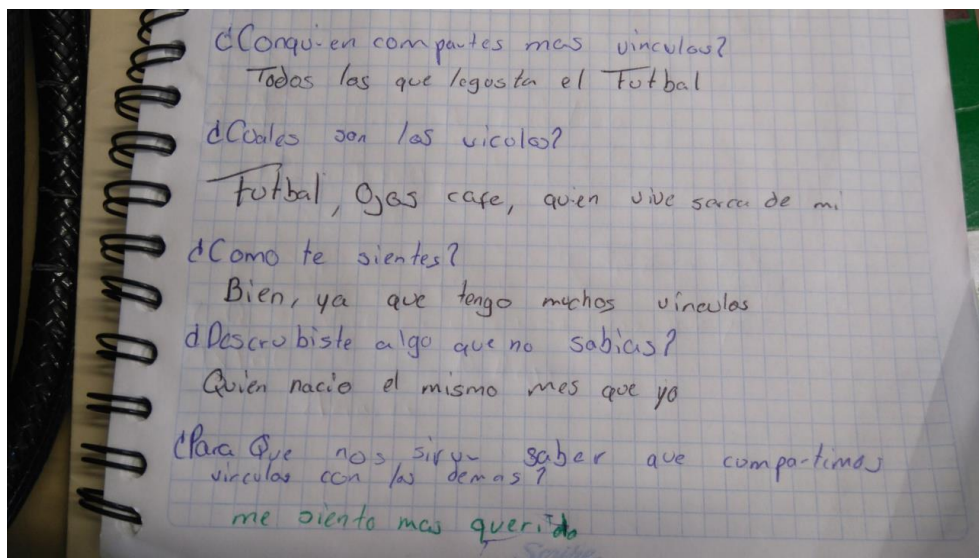 ¿Conquien compartes mas vinculos?
Todos los que legosta el Futbal
¿Cuales son los vicolos?
Futbal, Ojos cafe, quien vive serca de mi
¿Como te sientes?
Bien, ya que tengo muchos vinculos
¿Descrubiste algo que no sabias?
Quien nacio el mismo mes que yo
¿Para Que nos sirve saber que compartimos
vinculos con los demas?
me siento mas querido
Scribe